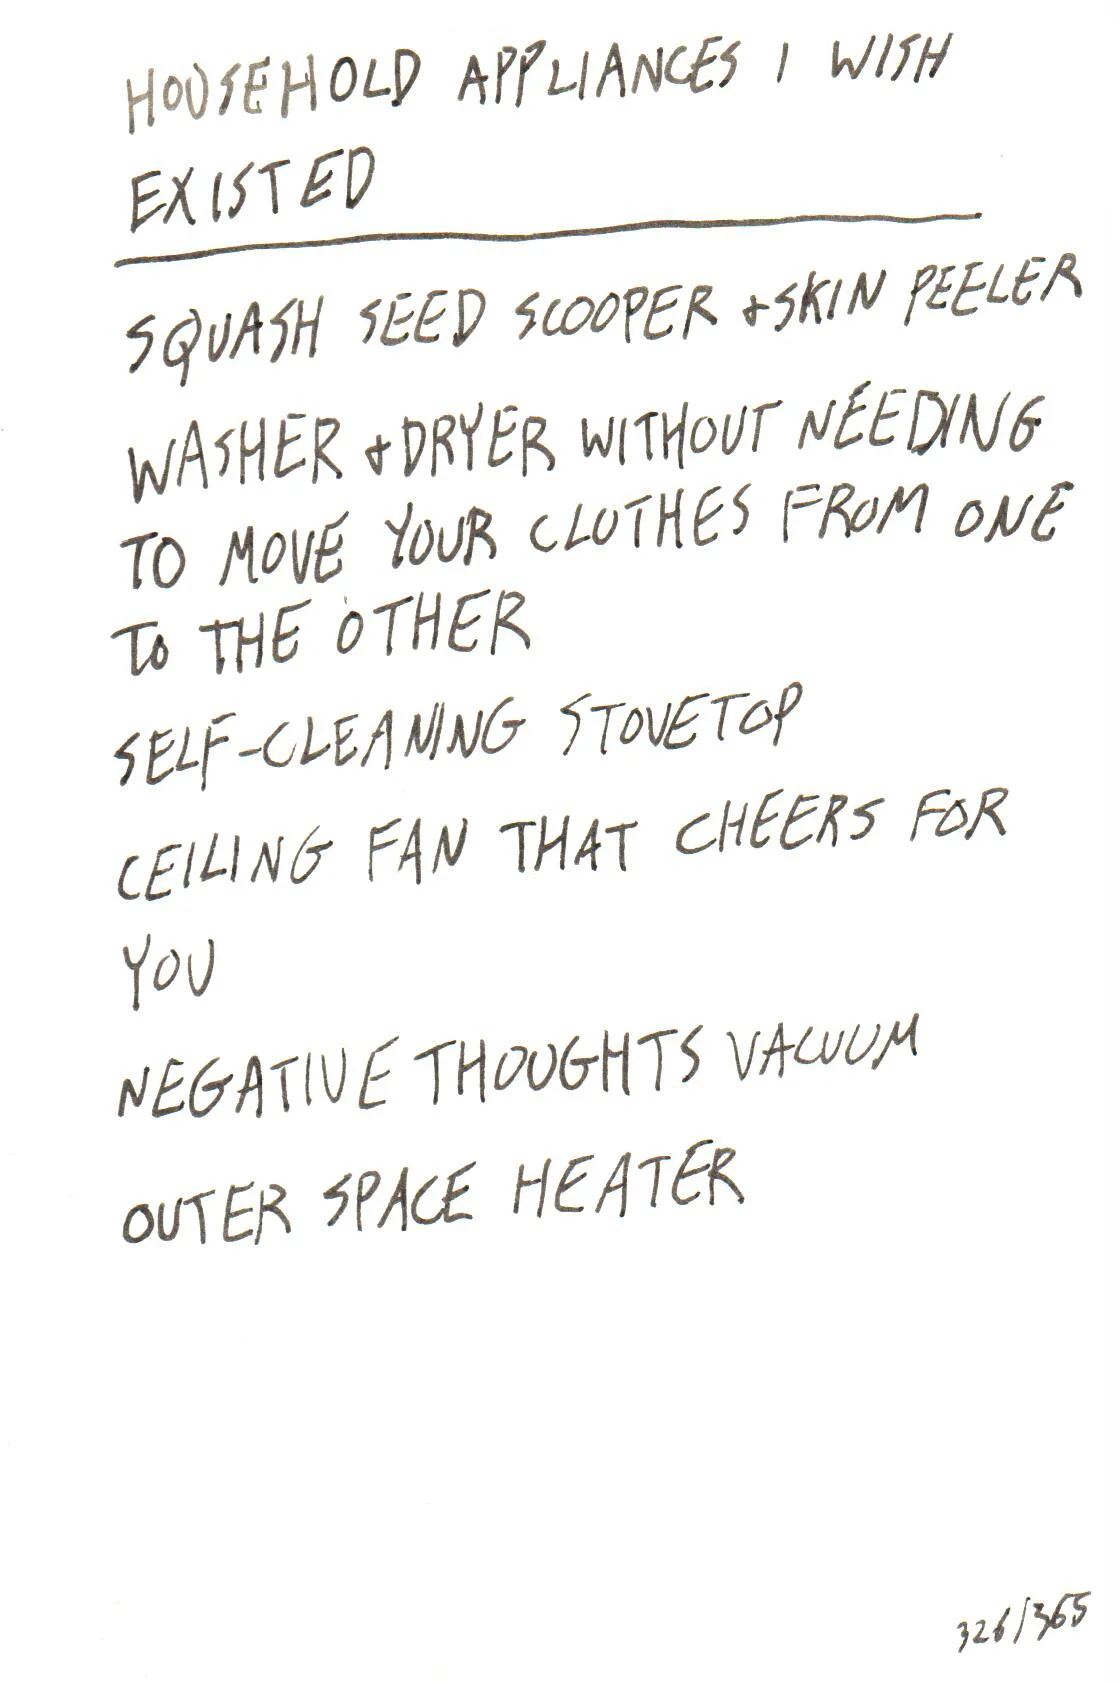 HOUSEHOLD APPLIANCES I WISH
EXISTED
SQUASH SEED SCOOPER + SKIN PEELER
WASHER + DRYER WITHOUT NEEDING
TO MOVE YOUR CLOTHES FROM ONE
TO THE OTHER
SELF-CLEANING STOVETOP
CEILING FAN THAT CHEERS FOR
YOU
NEGATIVE THOUGHTS VACUUM
OUTER SPACE HEATER
326/365